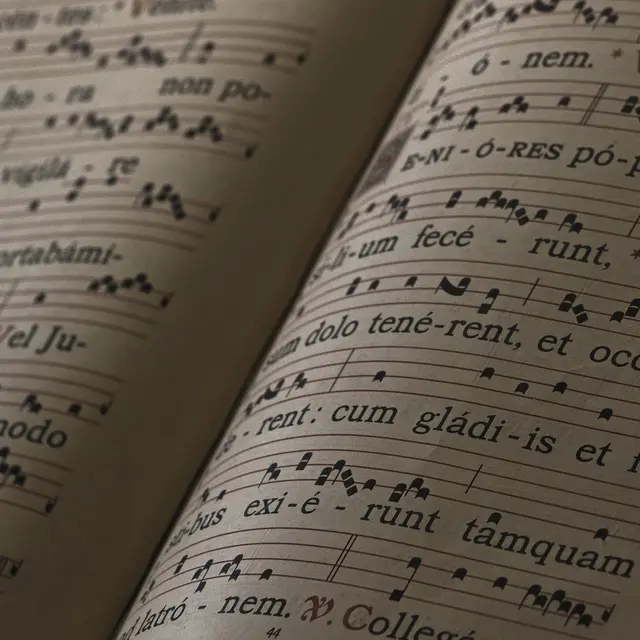 ho - ra non po-
vigilá - re
ortabámi-
vel Ju-
modo
ó - nem. *
E-NI-Ó-RES pó-p
-li-um fecé - runt, *
dolo tené-rent, et occ
- rent: cum gládi-is et f
bus exi-é - runt tamquam
latró - nem. ℣. Collegé
44